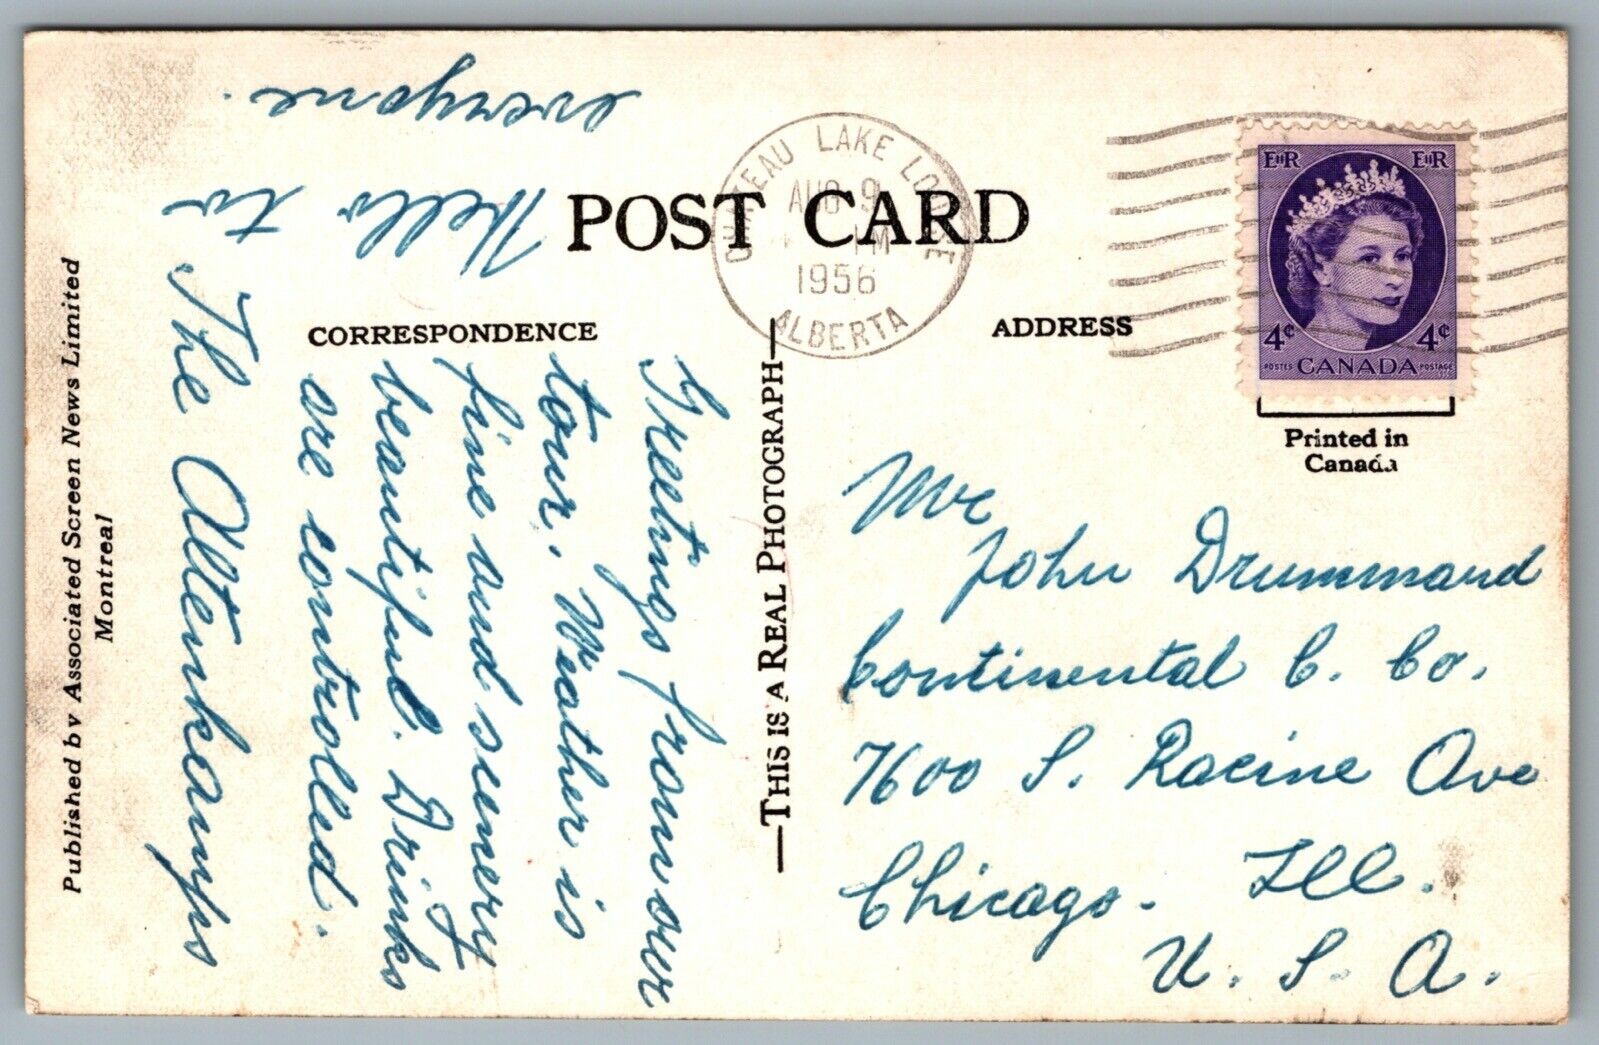 POST CARD
CORRESPONDENCE
ADDRESS
CHATEAU LAKE LOUISE
AUG 9
PM
1956
ALBERTA
EIIR
EIIR
4¢
4¢
POSTES CANADA POSTAGE
Printed in
Canada
Greetings from our
tour. Weather is
fine and scenery
beautiful. Drinks
are controlled.
The Altenkamps
Hello
to
everyone.
—THIS IS A REAL PHOTOGRAPH—
Mr
John Drummand
Continental C. Co.
7600 S. Racine Ave
Chicago. Ill.
U. S. A.
Published by Associated Screen News Limited
Montreal